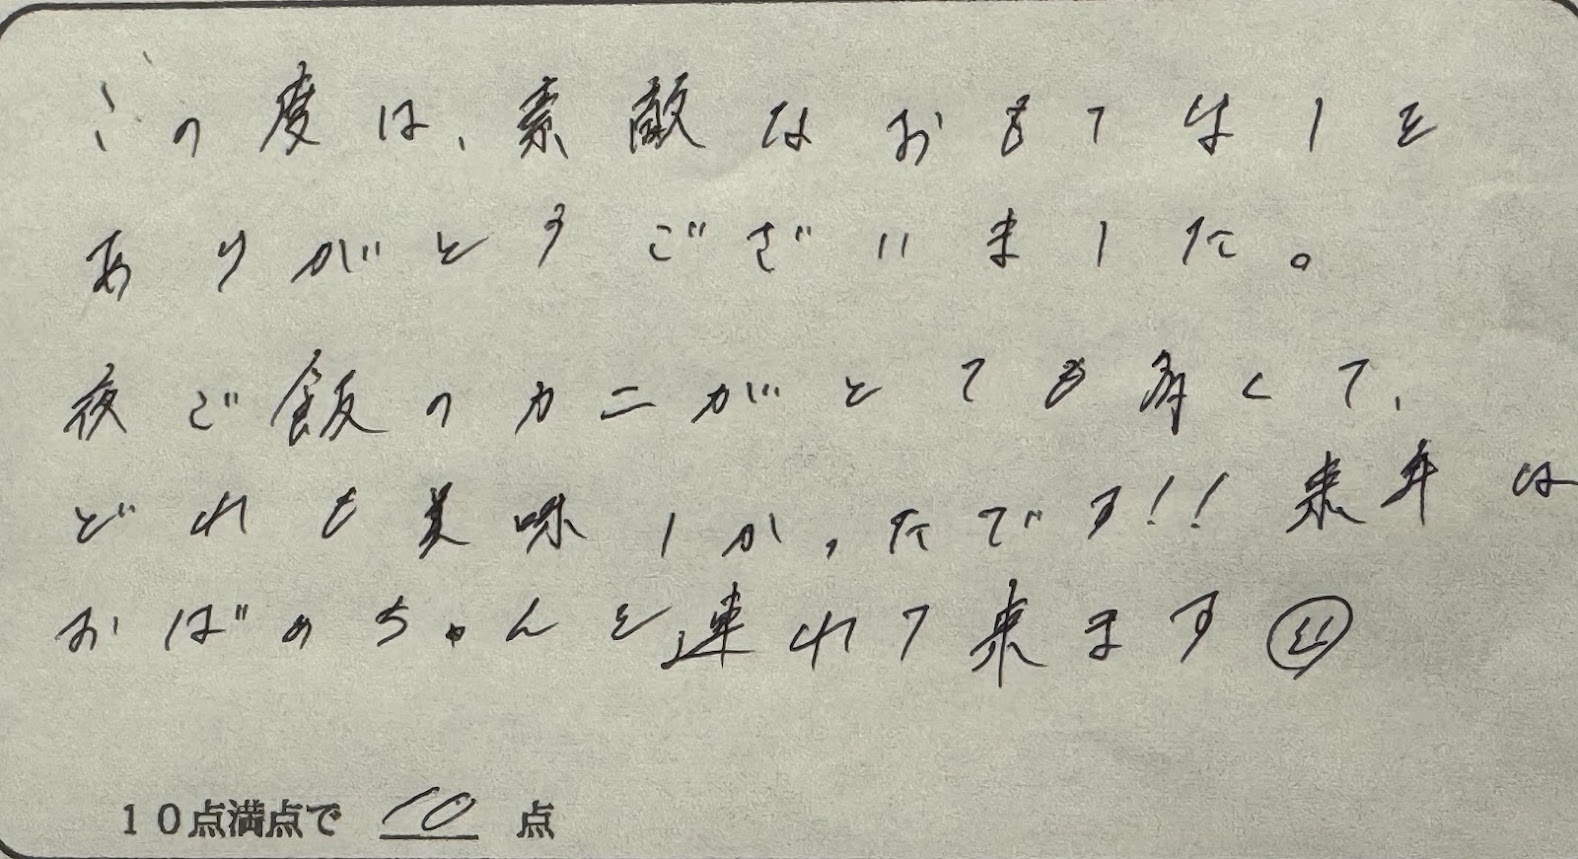 この度は、素敵なおもてなしを
ありがとうございました。
夜ご飯のカニがとても多くて、
どれも美味しかったです!! 来年は
おばあちゃんを連れて来ます
10点満点で 10 点